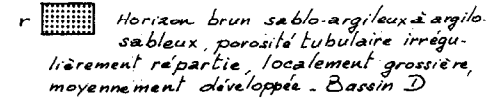 r Horizon brun sablo-argileux à argilo-
sableux, porosité tubulaire irrégu-
lièrement répartie, localement grossière,
moyennement développée - Bassin D